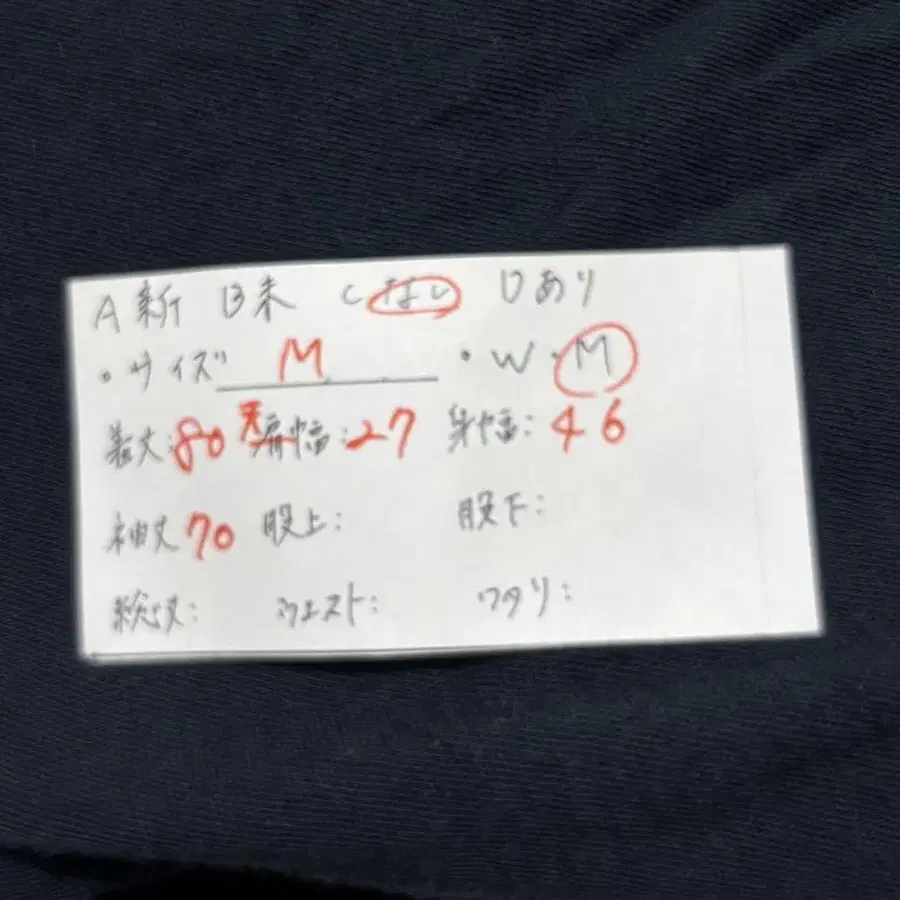 A新 B未 Cなし Dあり
・サイズ M ・W・M
着丈:80 天肩幅:27 身幅:46
袖丈70 股上: 股下:
総丈: ウエスト: ワタリ: